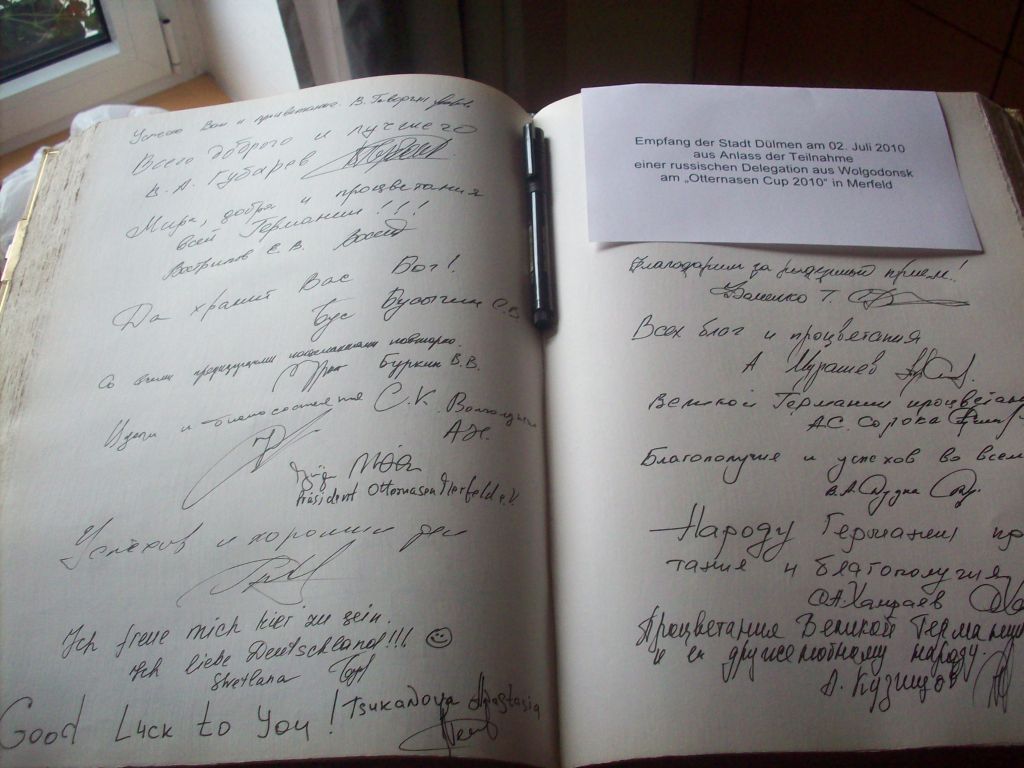 Успехов Вам и процветание. В.
Всего доброго и лучшего
В. А. Губарев
Мира, добра и процветания
всей Германии!!!
Вострилов Е. В.
Да хранит Вас Бог!
Со всеми предидущими
Буркин В.В.
Удачи и С.К.
А.Н.
Präsident Otternasen Merfeld e.V.
Успехов и хороших дел
Ich freue mich hier zu sein.
Ich liebe Deutschland!!!
Swetlana
Good Luck to You! Tsukanova Anastasia
Empfang der Stadt Dülmen am 02. Juli 2010
aus Anlass der Teilnahme
einer russischen Delegation aus Wolgodonsk
am „Otternasen Cup 2010" in Merfeld
Благодарим за радушный прием!
Т.
Всех благ и процветания
А Мурашев
Великой Германии процветан
А.С. Сорока
Благополучия и успехов во всем
В.А.
Народу Германии про
тания и благополучия
Процветания Великой Германии
и ее дружелюбному народу.
А. Кузнецов